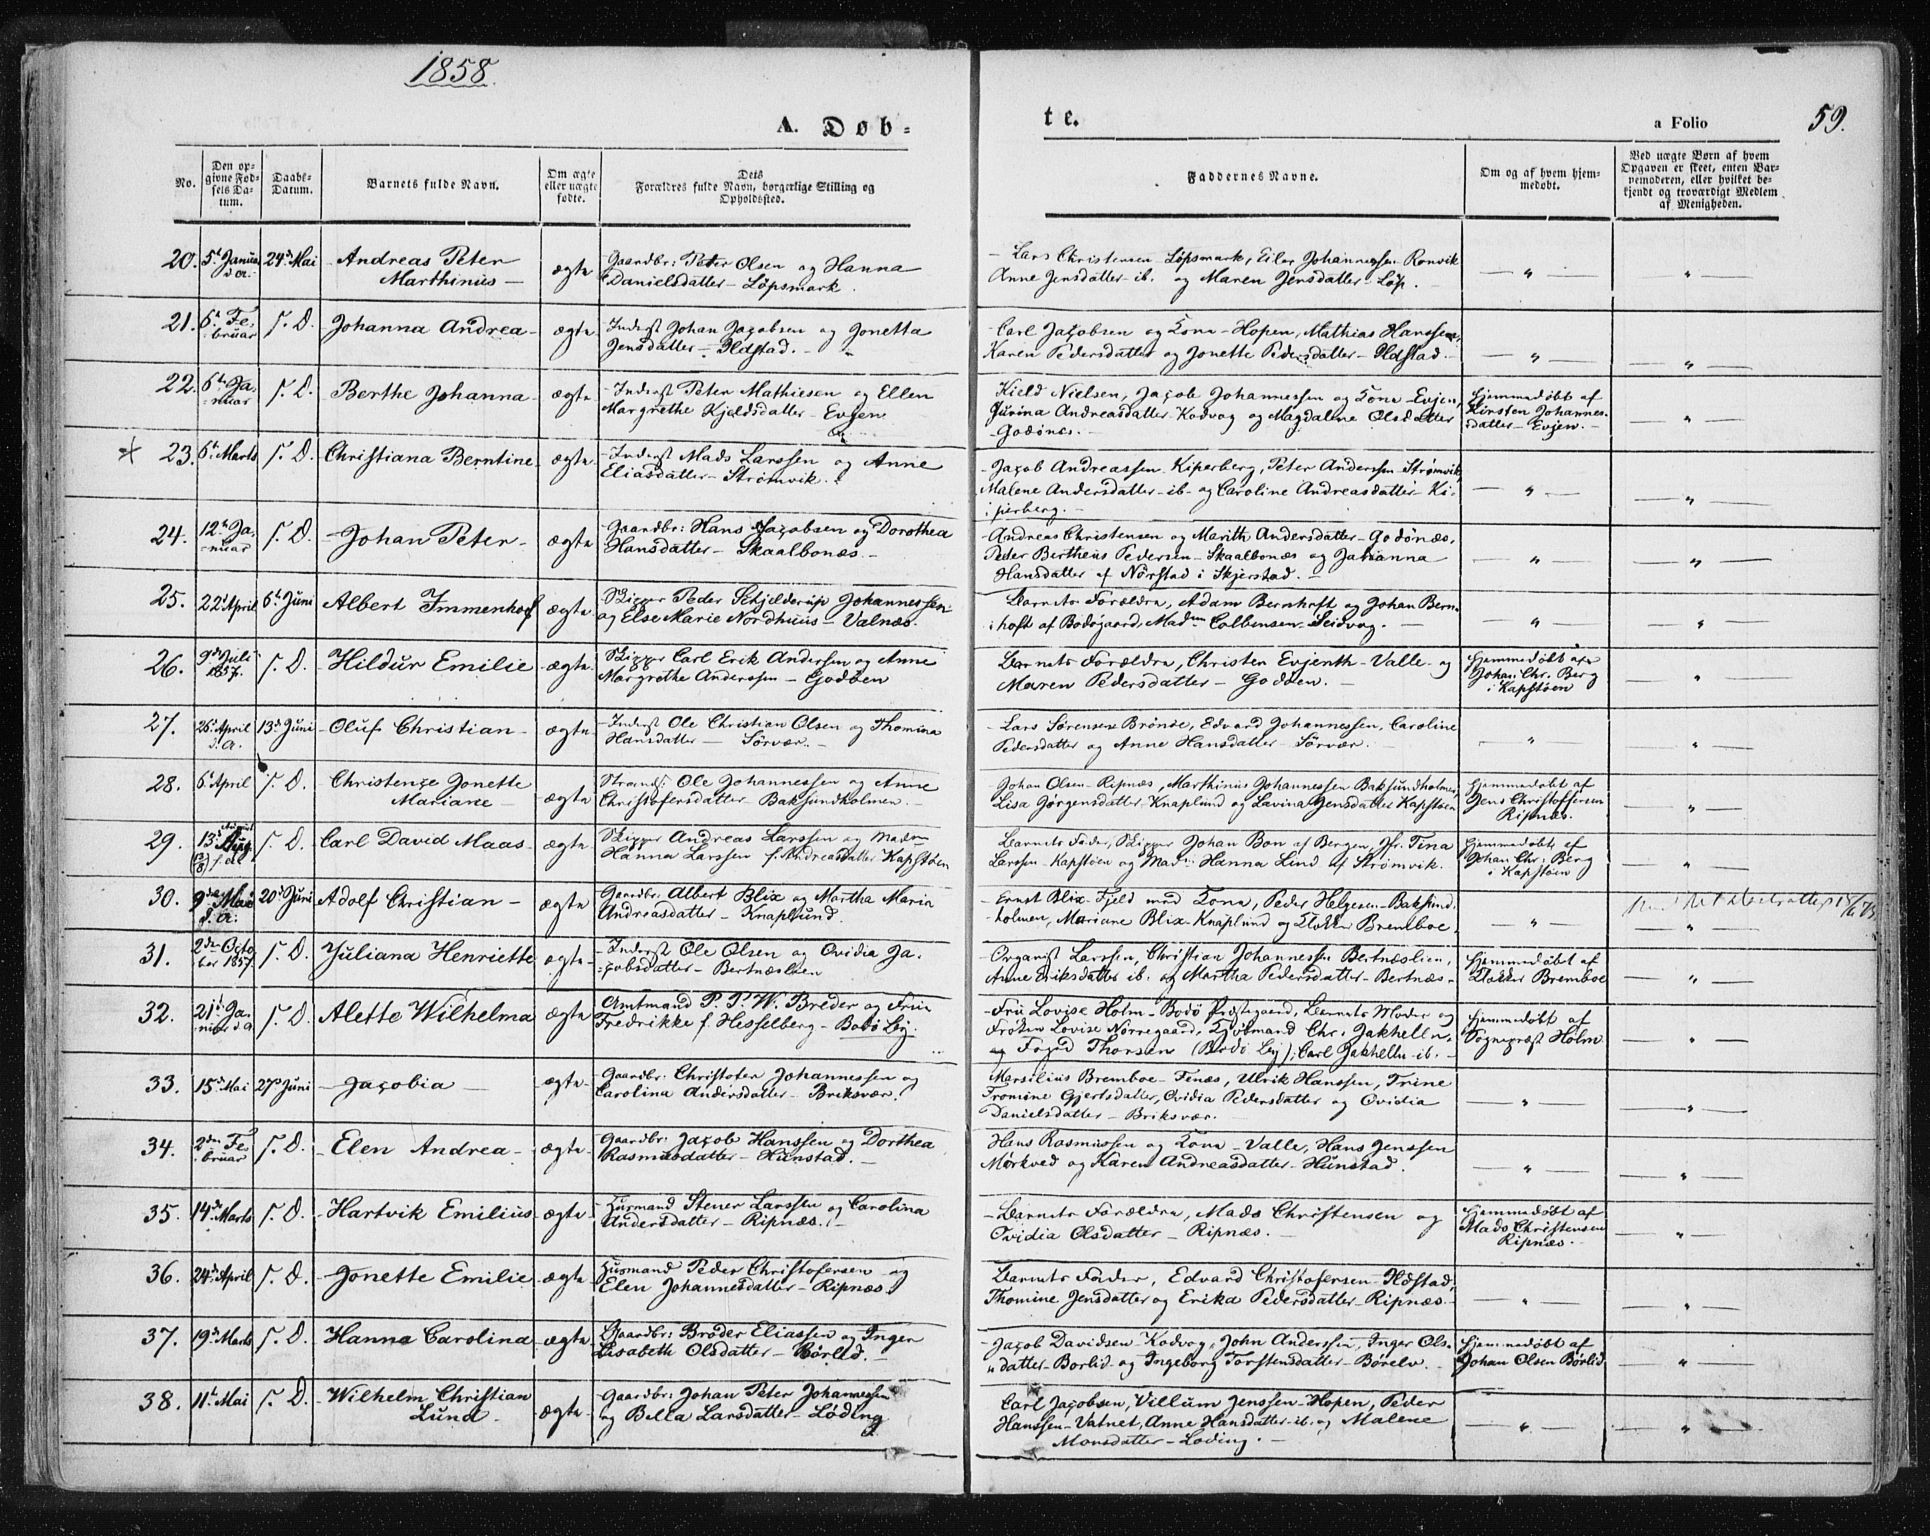 1858.
A. Døb-
te.
a Folio
59.
No.
Den op-
givne Fød-
sels Da-
tum.
Daabs-
Datum.
Barnets fulde Navn.
Om ægte
eller uægte
fødte.
Dets
Forældres fulde Navn, borgerlige Stilling og
Opholdssted.
Faddernes Navne.
Om og af hvem hjem-
medøbt.
Ved uægte Børn af hvem
Opgaven er skeet, enten Bar-
nemoderen, eller hvilket be-
kjendt og troværdigt Medlem
af Menigheden.
20. 5t Janua d. A. 24d Mai Andreas Peter
Marthinus - ægte Gaardbr: Peter Olsen og Hanna
Danielsdatter - Löpsmark.
- Lars Christensen Löpsmark, Eiler Johannessen Ronvik
Anne Jensdatter - ib. og Maren Jensdatter - Löp. — " — "
21. 6t Fe-
bruar s. D. Johanna Andrea - ægte - Inderst Johan Jacobsen og Jonetta
Jensdatter - Ildstad. -
Carl Jacobsen og Kone - Hopen, Mathias Hanssen,
Karen Pedersdatter og Jonette Pedersdatter - Ildstad. — " — "
22. 6t Ja-
nuar s. D. Berthe Johanna - ægte - Inderst Peter Mathiesen og Ellen
Margrethe Kjeldsdatter - Evjen
Kield Nielsen, Jacob Johannessen og Kone - Evjen,
Jurina Andreasdatter - Kodvog og Magdalene Olsdatter
Godönes. - Hjemmedøbt af
Kirsten Johannes-
datter - Evjen. — "
* 23. 6t Marts s. D. Christiana Berntine - ægte - Inderst Mads Larssen og Anne
Eliasdatter - Strömvik.
- Jacob Andreassen - Kiperberg, Peter Anderssen - Strömvik,
Malene Andersdatter - ib - og Caroline Andreasdatter - Ki-
perberg. — " — "
24. 12t Ja-
nuar s. D. Johan Peter - ægte - Gaardbr: Hans Jacobsen og Dorothea
Hansdatter - Skaalbonæs. -
- Andreas Christensen og Marith Andersdatter - Godönæs,
Peder Bertheus Pedersen - Skaalbonæs og Johanna
Hansdatter af Nörstad i Skjerstad. — " — "
25. 22d April 6t Juni Albert Immenhoff ægte - Skipper Peder Schjelderup Johannessen
og Else Marie Nordhuus - Valnæs.
- Barnets Forældre, Adam Bernhoft og Johan Bern-
hoft af Bodøgaard, Madm Colbensen - Seivaag. — " — "
26. 9d Juli
1857. s. D. Hildur Emilie - ægte - Skipper Carl Erik Andersen og Anne
Margrethe Anderssen - Godöen
Barnets Forældre, Christen Evjenth - Valle - og
Maren Pedersdatter - Godöen. - Hjemmedøbt af
Johan Chr. Berg
i Kapstöen "
27. 26d April
d. A. 13d Juni Oluf Christian - ægte - Inderst Ole Christian Olsen og Thomina
Hansdatter — Sörvær. -
- Lars Sörensen Brönde, Edvard Johannessen, Caroline
Pedersdatter og Anne Hansdatter Sörvær. — " — "
28. 6t April s. D. Christenze Jonette
Mariane - ægte Strands. Ole Johannessen og Anne
Christofersdatter - Baksundholmen.
Johan Olsen - Ripnæs, Marthinus Johannessen Baksundholmen,
Lisa Görgensdatter Knaplund og Lavina Jensdatter Kapstöen Hjemmedøbt af
Jens Christoffersen
Ripnæs. "
29. 13d August s. D. Carl David Maas - ægte - Skipper Andreas Larssen og Madm
Hanna Larssen f. Andreasdatter - Kapstöen
- Barnets Fader, Skipper Johan Bon af Bergen, Jfr. Tina
Larssen - Kapstöen og Mad: Hanna Lind af Strömvik. Hjemmedøbt af
Johan Chr: Berg
i Kapstöen "
30. 9de Mai
d. A. 20d Juni Adolf Christian - ægte Gaardbr: Albert Blix og Martha Maria
Andreasdatter - Knaplund.
- Ernst Blix - Fjeld med Kone, Peder Helgesen - Baksund-
holmen, Mariane Blix - Knaplund og Klokker Bremboe, — " — "
31. 2den Octo-
ber 1857. s. D. Juliana Henriette ægte - Inderst Ole Olsen og Ovidia Ja-
cobsdatter - Bertnæslien
- Organist Larssen, Christian Johannessen Bertnæslien,
Anne Eriksdatter ib. og Martha Pedersdatter - Bertnæs - Hjemmedøbt af
Klokker Bremboe "
32. 21d Ja-
nuar d. A s. D. Alette Wilhelma ægte - Amtmand P. P. W. Breder og Frue
Fredrikke f. Hesselberg - Bodö By.
- Fru Lovise Holm - Bodö Præstegaard, Barnets Moder og
Fröken Lovise Nörregaard, Kjöbmand Chr. Jakhelln,
og Foged Thorsen (Bodö By); Carl Jakhelln - ib. - Hjemmedøbt af
Sognepræst Holm "
33. 15d Mai 27d Juni Jacobia - ægte - Gaardbr: Christofer Johannessen og
Carolina Andersdatter - Briksvær.
Marsilius Bremboe - Fenæs, Ulrik Hanssen, Trine
Tromine Gjertsdatter, Ovidia Pedersdatter og Ovidia
Danielsdatter - Briksvær. — " — "
34. 2den Fe-
bruar s. D. Elen Andrea - ægte - Gaardbr: Jacob Hanssen og Dorthea
Rasmusdatter - Hunstad. -
Hans Rasmussen og Kone - Valle, Hans Jenssen
Mörkved og Karen Andreasdatter - Hunstad. — " — "
35. 14de Marts s. D. Hartvik Emilius ægte - Husmand Stener Larssen og Carolina
Andersdatter - Ripnæs.
- Barnets Forældre, Mads Christensen og
Ovidia Olsdatter - Ripnæs. - Hjemmedøbt af
Mads Christensen
Ripnæs. - "
36. 24d April s. D. Jonette Emilie ægte - Husmand Peder Christofersen og
Elen Johannesdatter - Ripnæs.
- Barnets Fader, Edvard Christofersen - Ildstad,
Thomine Jensdatter og Erika Pedersdatter - Ripnæs. — " — "
37. 19d Marts s. D. Hanna Carolina ægte - Gaardbr: Bröder Eliassen og Inger
Lisabeth Olsdatter - Börlid.
- Jacob Davidsen Kodvog, John Anderssen, Inger Ols-
datter - Borlid - og Ingeborg Torstensdatter - Börelv. Hjemmedøbt af
Johan Olsen Börlid. "
38. 11t Mai s. D. Wilhelm Christian
Lund. ægte - Gaardbr: Johan Peter Johannessen
og Bella Larsdatter - Löding
Carl Jacobsen, Villum Jenssen - Hopen, Peder
Hanssen - Vatnet, Anne Hansdatter - ib. og Malene
Monsdatter - Loding. — " — "